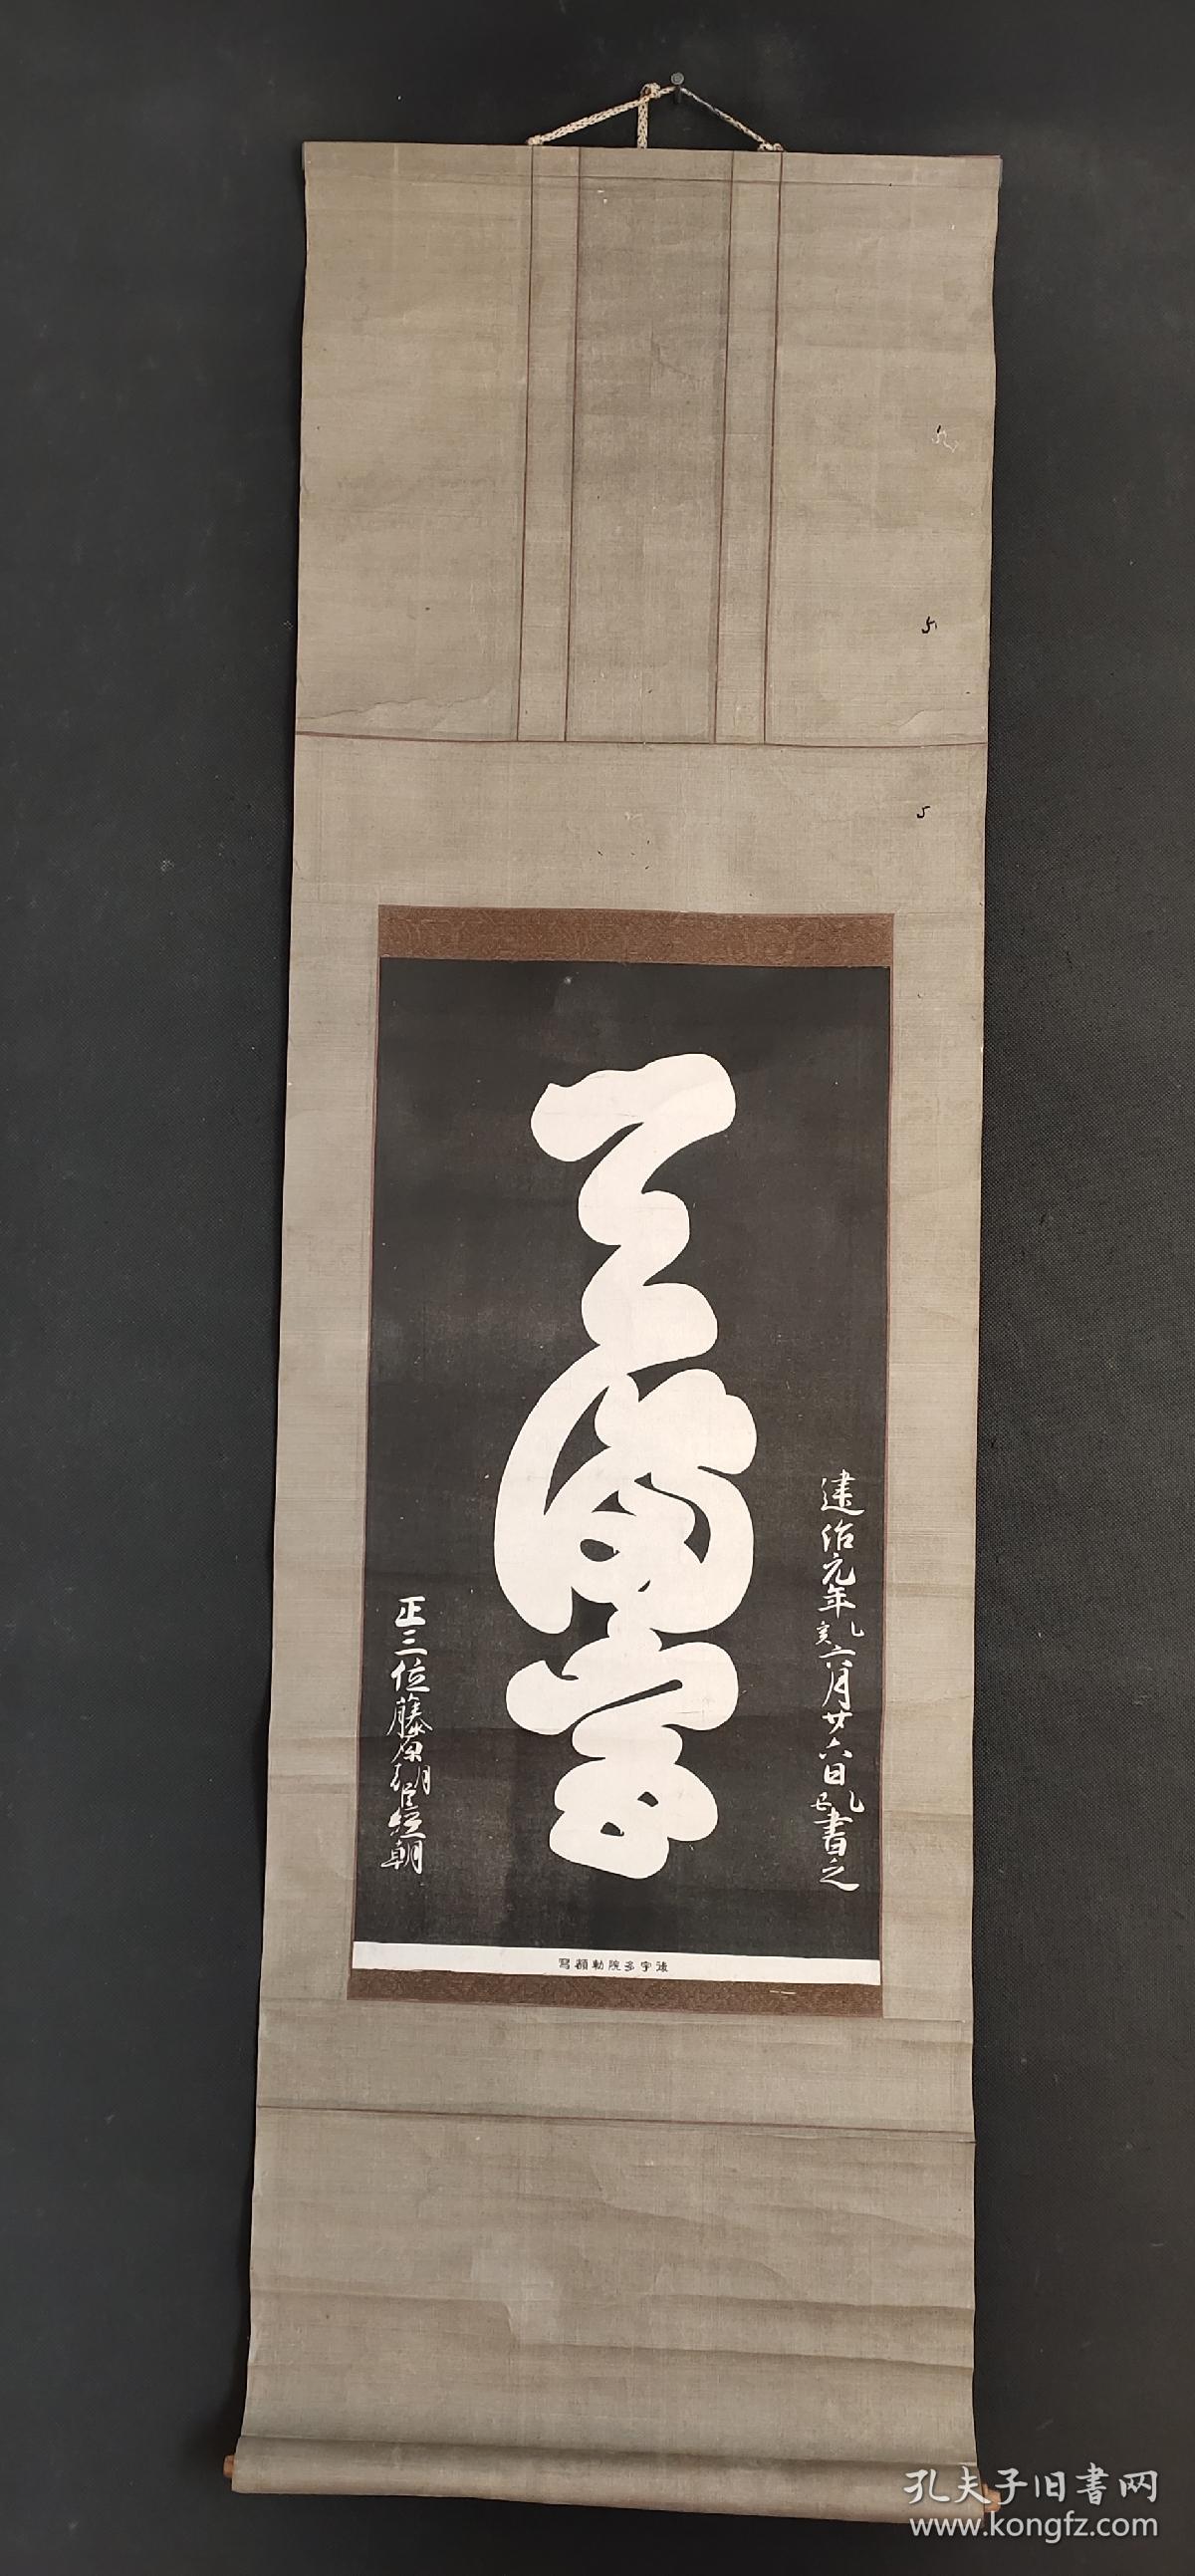 建治元年乙亥六月廿六日乙巳書之
天満宮
正三位藤原朝臣経朝
後宇多院勅額寫
孔夫子旧書网
www.kongfz.com